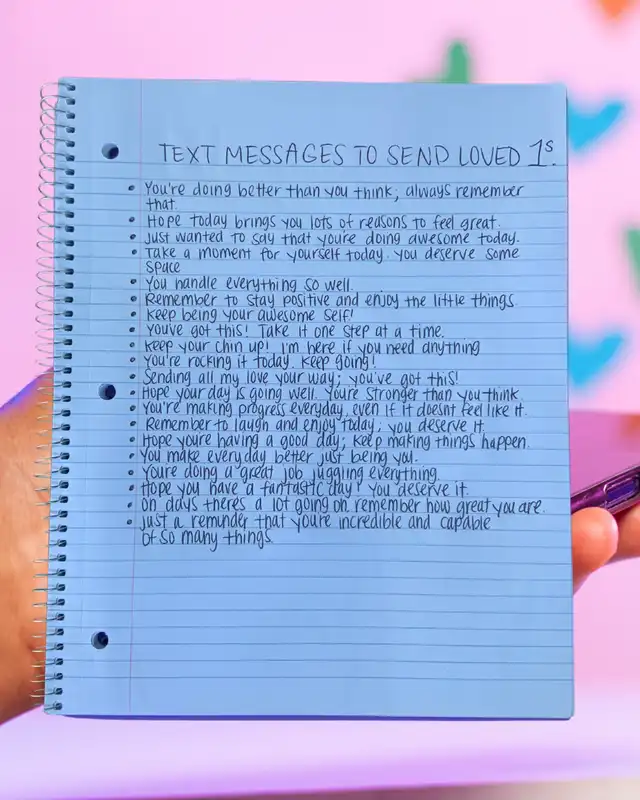 TEXT MESSAGES TO SEND LOVED 1s.
• You're doing better than you think; always remember
that.
• Hope today brings you lots of reasons to feel great.
• Just wanted to say that you're doing awesome today.
• Take a moment for yourself today. you deserve some
space
• You handle everything so well.
• Remember to stay positive and enjoy the little things.
• Keep being your awesome self!
• You've got this! Take it one step at a time.
• Keep your chin up! I'm here if you need anything
• You're rocking it today. Keep going!
• Sending all my love your way; you've got this!
• Hope your day is going well. You're stronger than you think.
• You're making progress everyday, even if it doesnt feel like it.
• Remember to laugh and enjoy today; you deserve it.
• Hope you're having a good day; keep making things happen.
• You make everyday better just being you.
• You're doing a great job juggling everything.
• Hope you have a fantastic day! You deserve it.
• On days there's a lot going on, remember how great you are.
• Just a reminder that you're incredible and capable
of so many things.